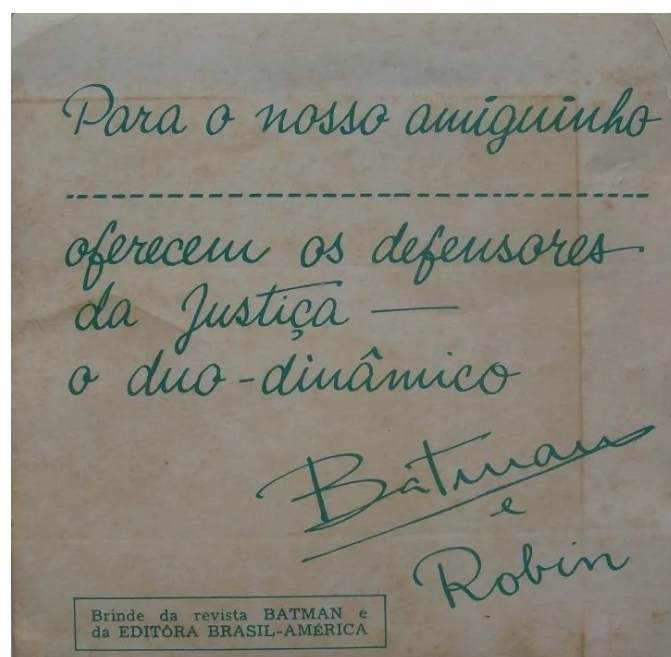 Para o nosso amiguinho
oferecem os defensores
da Justiça —
o duo-dinâmico
Batman
e
Robin
Brinde da revista BATMAN e
da EDITÔRA BRASIL-AMÉRICA